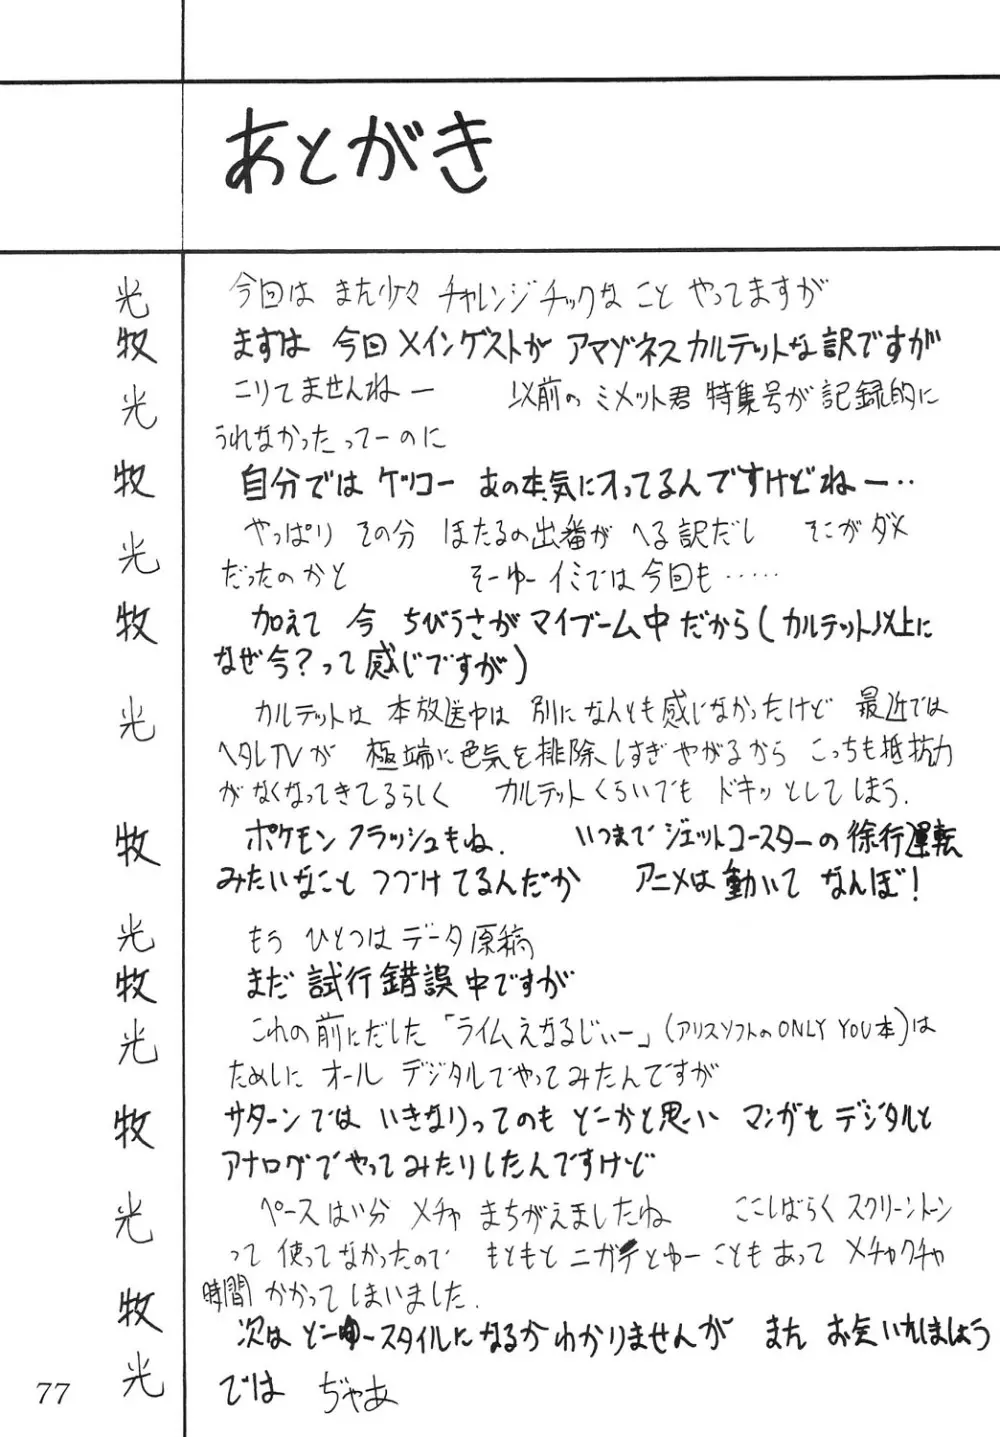 あとがき
光 今回は また少々 チャレンジチックな こと やってますが
牧 まずは 今回 メインゲストが アマゾネス カルテットな 訳ですが
光 こりてませんねー 以前の ミメット君 特集号が 記録的に
うれなかったってーのに
牧 自分では ケッコー あの本気に入ってるんですけどねー‥
光 やっぱり その分 ほたるの出番が へる訳だし そこがダメ
だったのかと そーゆーイミでは今回も……
牧 加えて 今 ちびうさが マイブーム中 だから(カルテット以上に
なぜ今?って感じですが)
光 カルテットは 本放送中は 別になんとも感じなかったけど 最近では
ヘタレTVが 極端に色気を排除しすぎやがるから こっちも抵抗力
がなくなってきてるらしく カルテットくらいでも ドキッとしてしまう.
牧 ポケモン フラッシュもね. いつまで ジェットコースターの 徐行運転
みたいなこと つづけてるんだか アニメは 動いて なんぼ!
光 もう ひとつは データ原稿
牧 まだ 試行錯誤中ですが
光 これの前にだした 「ライム えなるじぃー」(アリスソフトのONLY YOU本)は
ためしに オール デジタルでやってみたんですが
牧 サターンでは いきなりってのも どーかと思い マンガを デジタルと
アナログでやってみたりしたんですけど
光 ペースはい分 メチャ まちがえましたね ここしばらく スクリーントーン
って 使ってなかったので もともと ニガテとゆーこともあって メチャクチャ
時間 かかってしまいました.
牧 次は どーゆースタイルになるか わかりませんが また お会いしましょう
光 では ぢゃあ
77